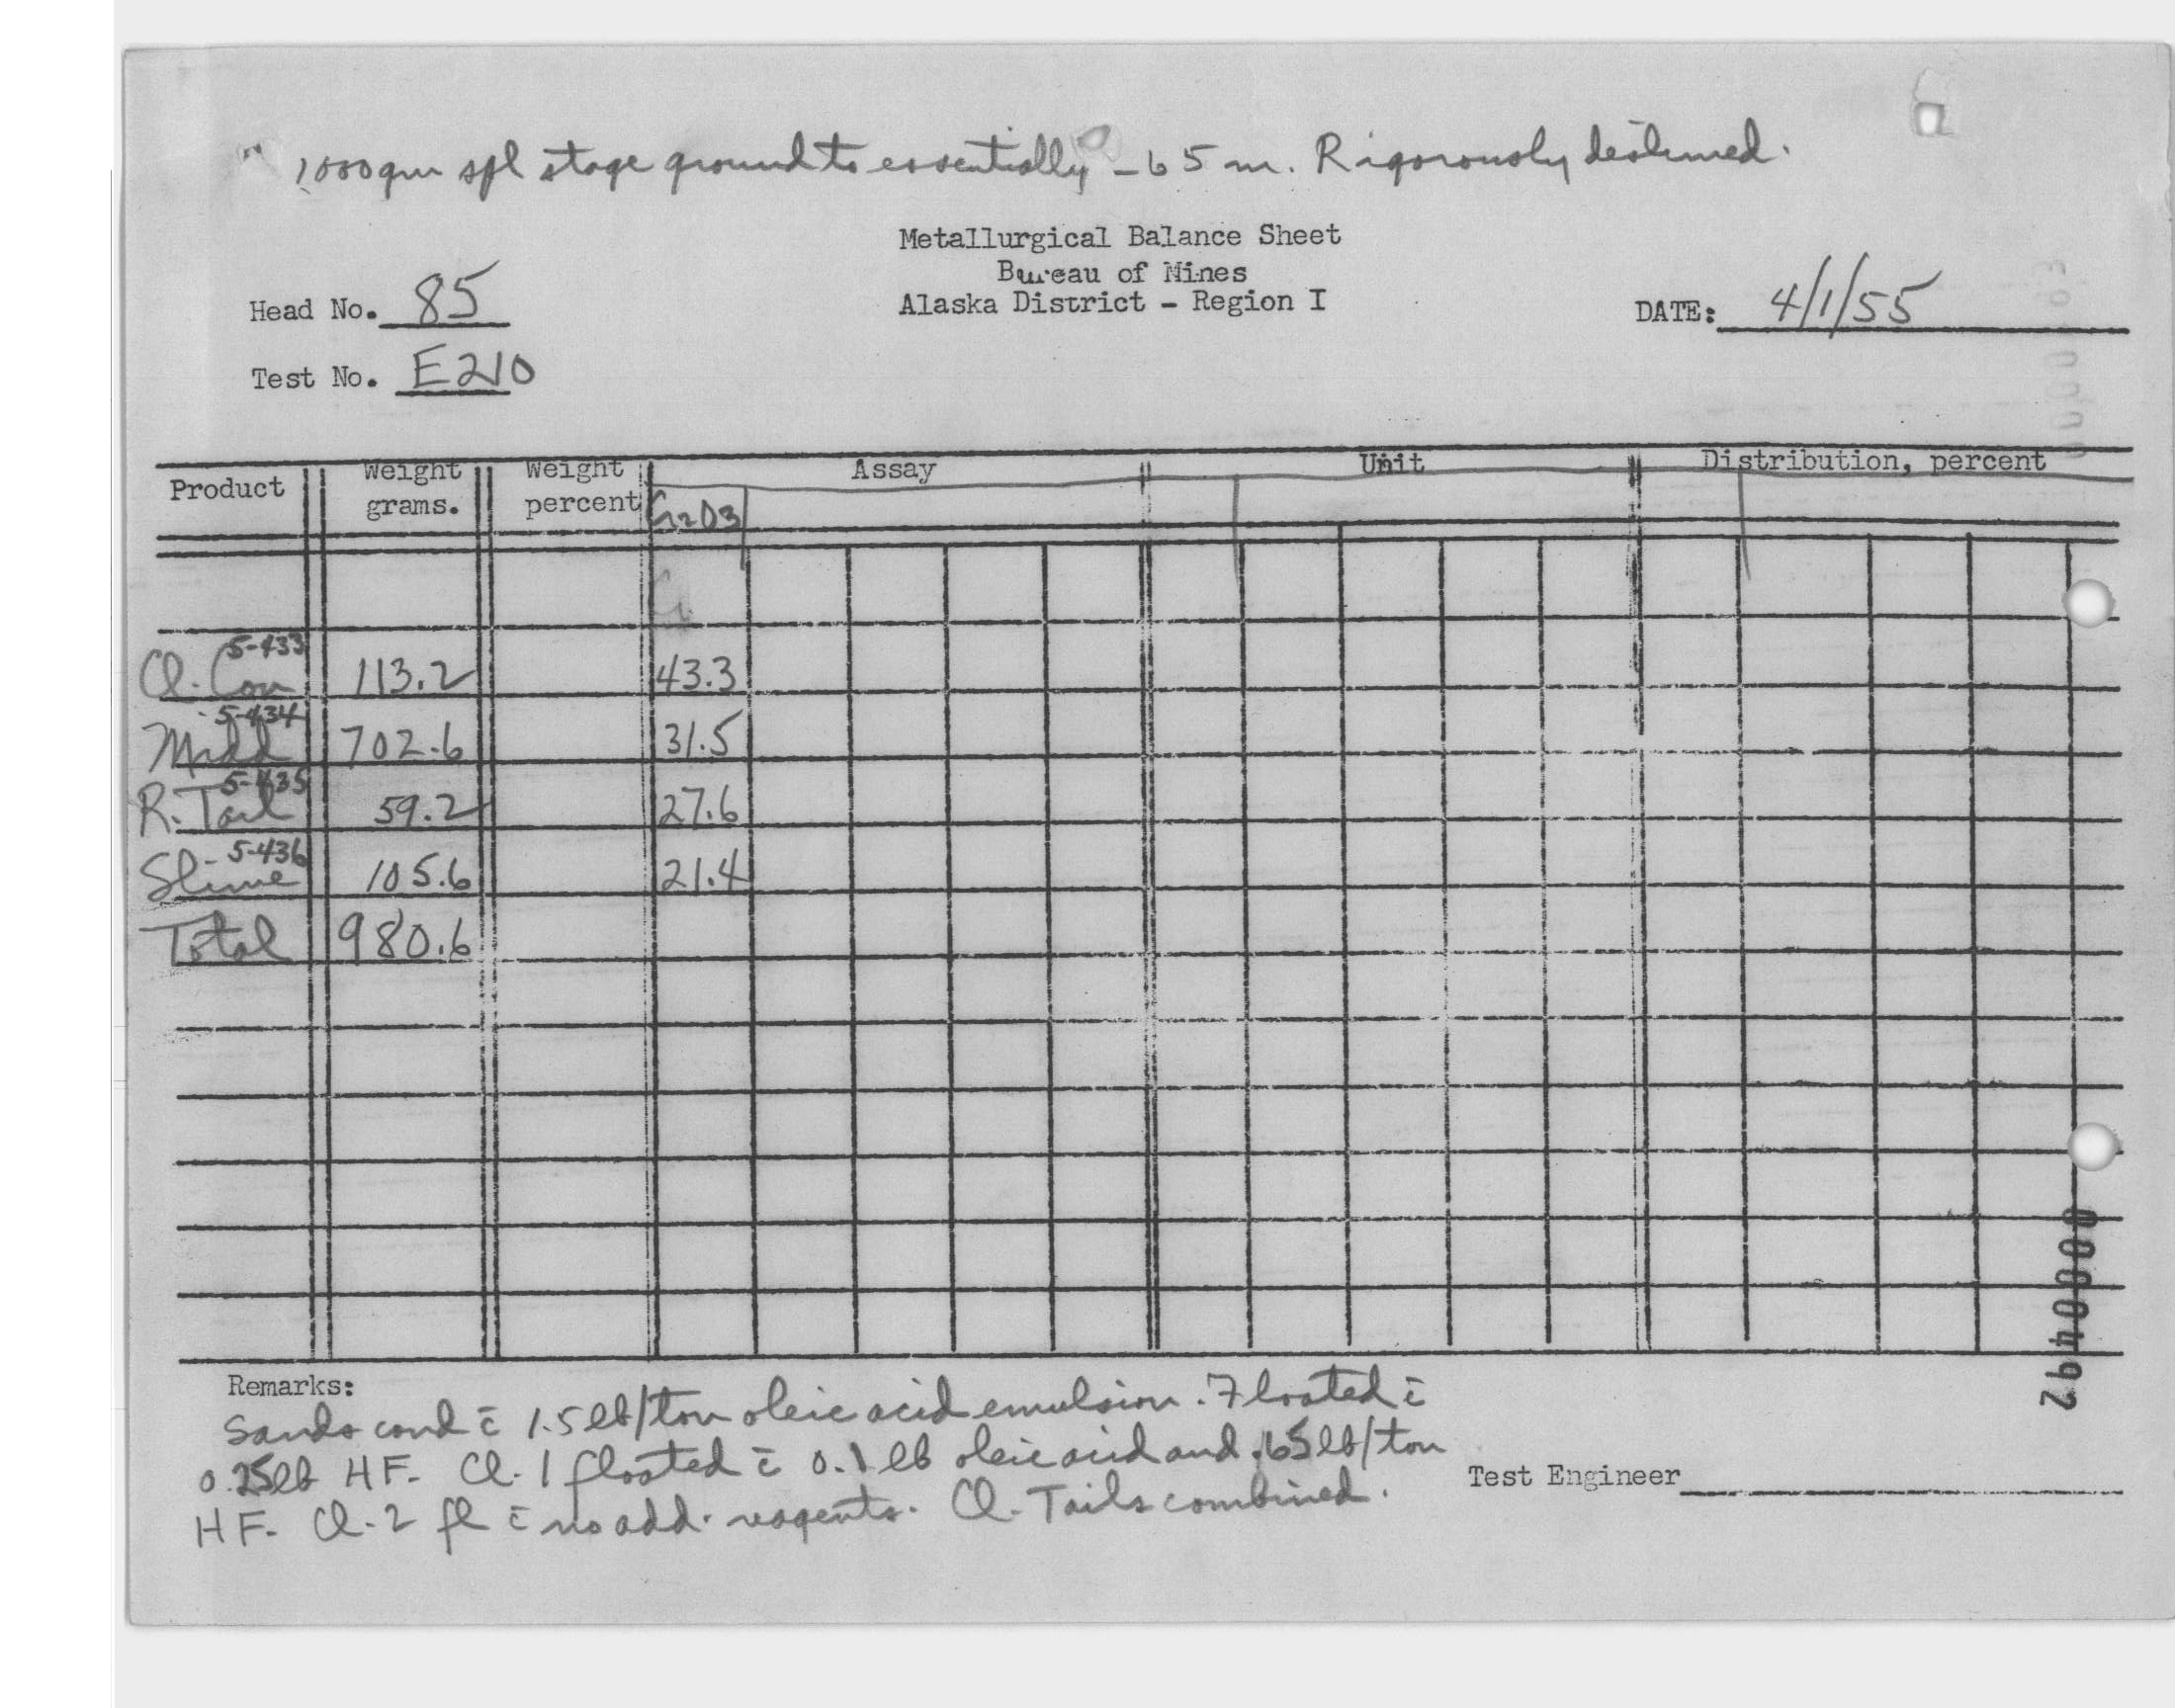 1000gm spl stage ground to essentially -65 m. Rigorously deslimed.
Metallurgical Balance Sheet
Bureau of Mines
Alaska District - Region I
Head No. 85
DATE: 4/1/55
Test No. E210
Product Weight grams. Weight percent Assay Unit Distribution, percent
Cr2O3
5-433
Cl. Con 113.2 43.3
5-434
Midd 702.6 31.5
5-435
R. Tail 59.2 27.6
5-436
Slime 105.6 21.4
Total 980.6
000492
Remarks:
Sands cond c̄ 1.5 lb/ton oleic acid emulsion. Floated c̄
0.25lb HF. Cl. 1 floated c̄ 0.1 lb oleic acid and .65 lb/ton
HF. Cl. 2 fl c̄ no add. reagents. Cl. Tails combined.
Test Engineer